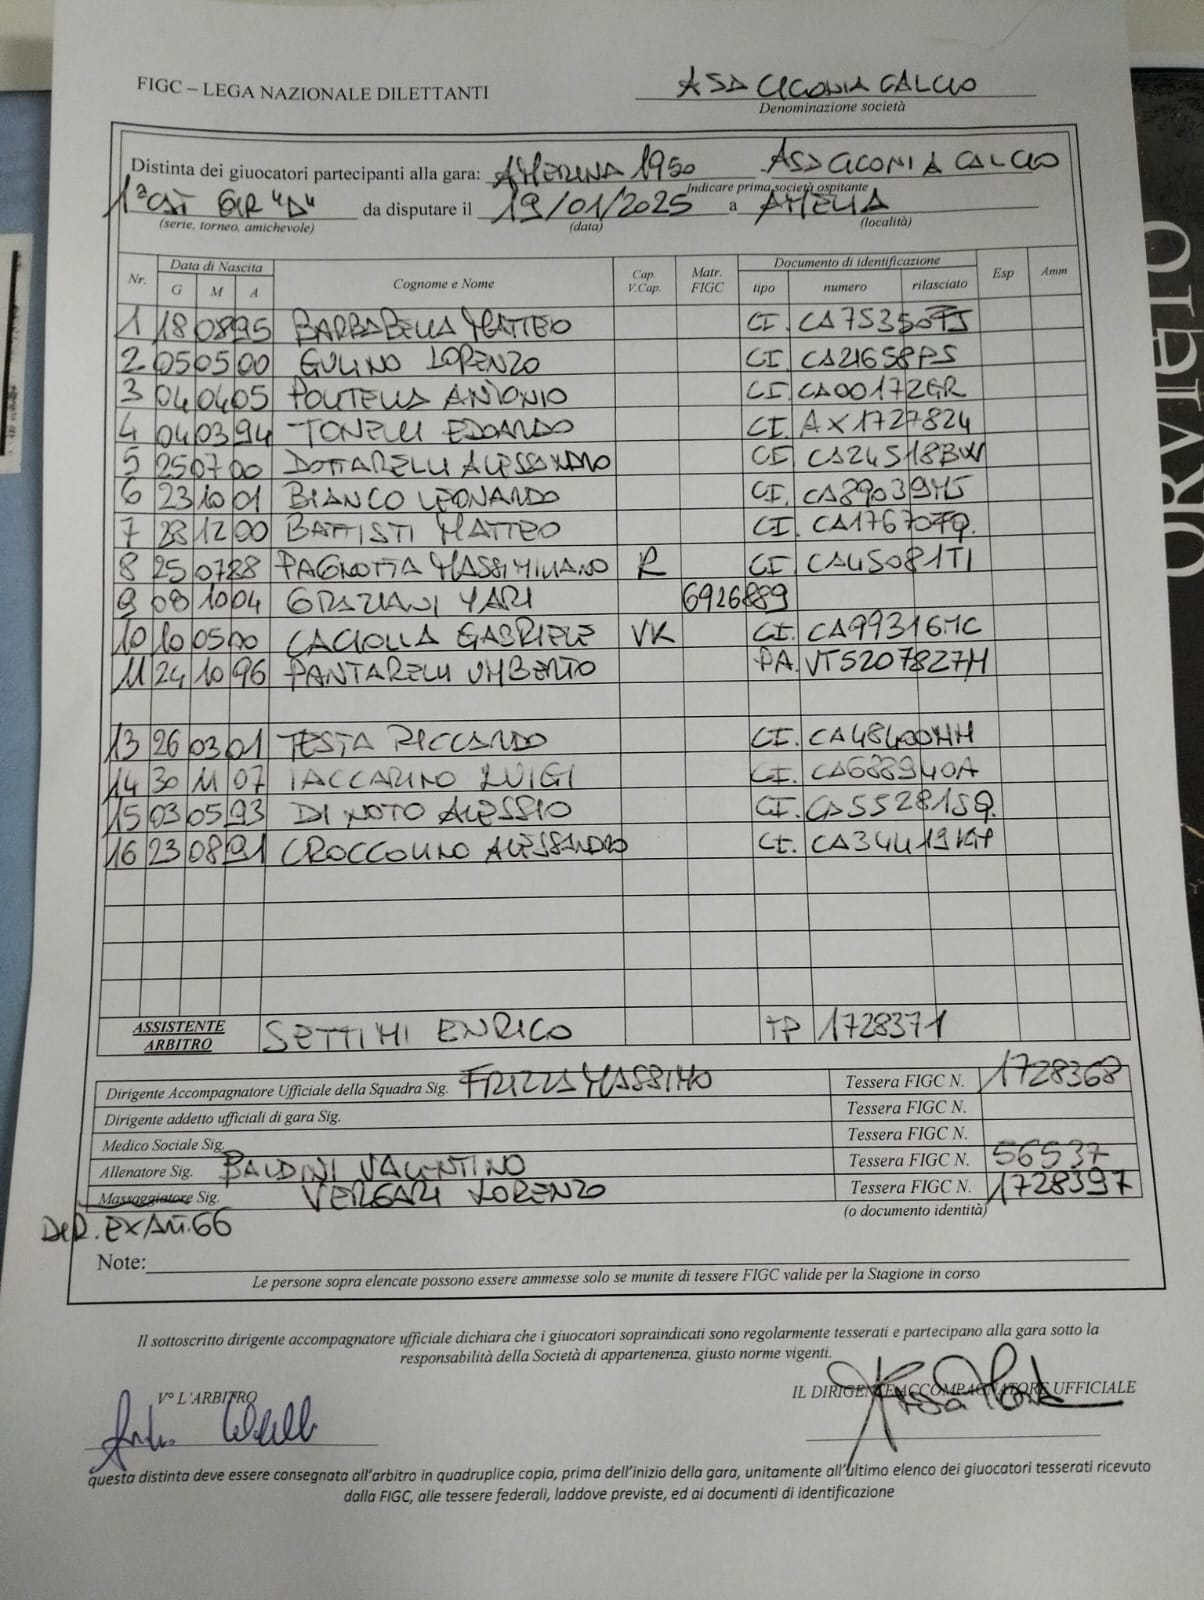 FIGC – LEGA NAZIONALE DILETTANTI
ASD CICONIA CALCIO
Denominazione società
Distinta dei giuocatori partecipanti alla gara: AMERINA 1950 ASD CICONIA CALCIO
Indicare prima società ospitante
1ª CAT GIR "D" da disputare il 19/01/2025 a AMELIA
(serie, torneo, amichevole) (data) (località)
Nr. Data di Nascita Cognome e Nome Cap. V.Cap. Matr. FIGC Documento di identificazione Esp Amm
G M A tipo numero rilasciato
1 18 08 95 BARBABELLA MATTEO CI. CA75350FJ
2 05 05 00 GULINO LORENZO CI. CA21658PS
3 04 04 05 POLITELLI ANTONIO CI. CA00172GR
4 04 03 94 TONELLI EDOARDO CI. AX1727824
5 25 07 00 DOTTARELLI ALESSANDRO CI CA24518BW
6 23 10 01 BIANCO LEONARDO CI. CA89039MS
7 28 12 00 BATTISTI MATTEO CI. CA17670TQ.
8 25 07 88 PAGNOTTA MASSIMILIANO K CI CA45081TI
9 08 10 04 GRAZIANI YARI 6926889
10 10 05 00 CACIOLLA GABRIELE VK CI. CA99316MC
11 24 10 96 PANTARELLI UMBERTO PA. VT5207827H
13 26 03 01 TESTA RICCARDO CI. CA48400HH
14 30 11 07 IACCARINO LUIGI CI. CA68894OA
15 03 05 93 DI NOTO ALESSIO CI. CA55281SQ.
16 23 08 91 CROCCOLINO ALESSANDRO CI. CA34419KM
ASSISTENTE ARBITRO SETTIMI ENRICO TP 1728371
Dirigente Accompagnatore Ufficiale della Squadra Sig. FRIZZA MASSIMO Tessera FIGC N. 1728368
Dirigente addetto ufficiali di gara Sig. Tessera FIGC N.
Medico Sociale Sig. Tessera FIGC N.
Allenatore Sig. BALDINI VALENTINO Tessera FIGC N. 56537
Massaggiatore Sig. VERGARI LORENZO Tessera FIGC N. 1728397
DIR. EX Art. 66 (o documento identità)
Note:
Le persone sopra elencate possono essere ammesse solo se munite di tessere FIGC valide per la Stagione in corso
Il sottoscritto dirigente accompagnatore ufficiale dichiara che i giuocatori sopraindicati sono regolarmente tesserati e partecipano alla gara sotto la
responsabilità della Società di appartenenza, giusto norme vigenti.
V° L'ARBITRO IL DIRIGENTE ACCOMPAGNATORE UFFICIALE
questa distinta deve essere consegnata all'arbitro in quadruplice copia, prima dell'inizio della gara, unitamente all'ultimo elenco dei giuocatori tesserati ricevuto
dalla FIGC, alle tessere federali, laddove previste, ed ai documenti di identificazione
ORVIETO